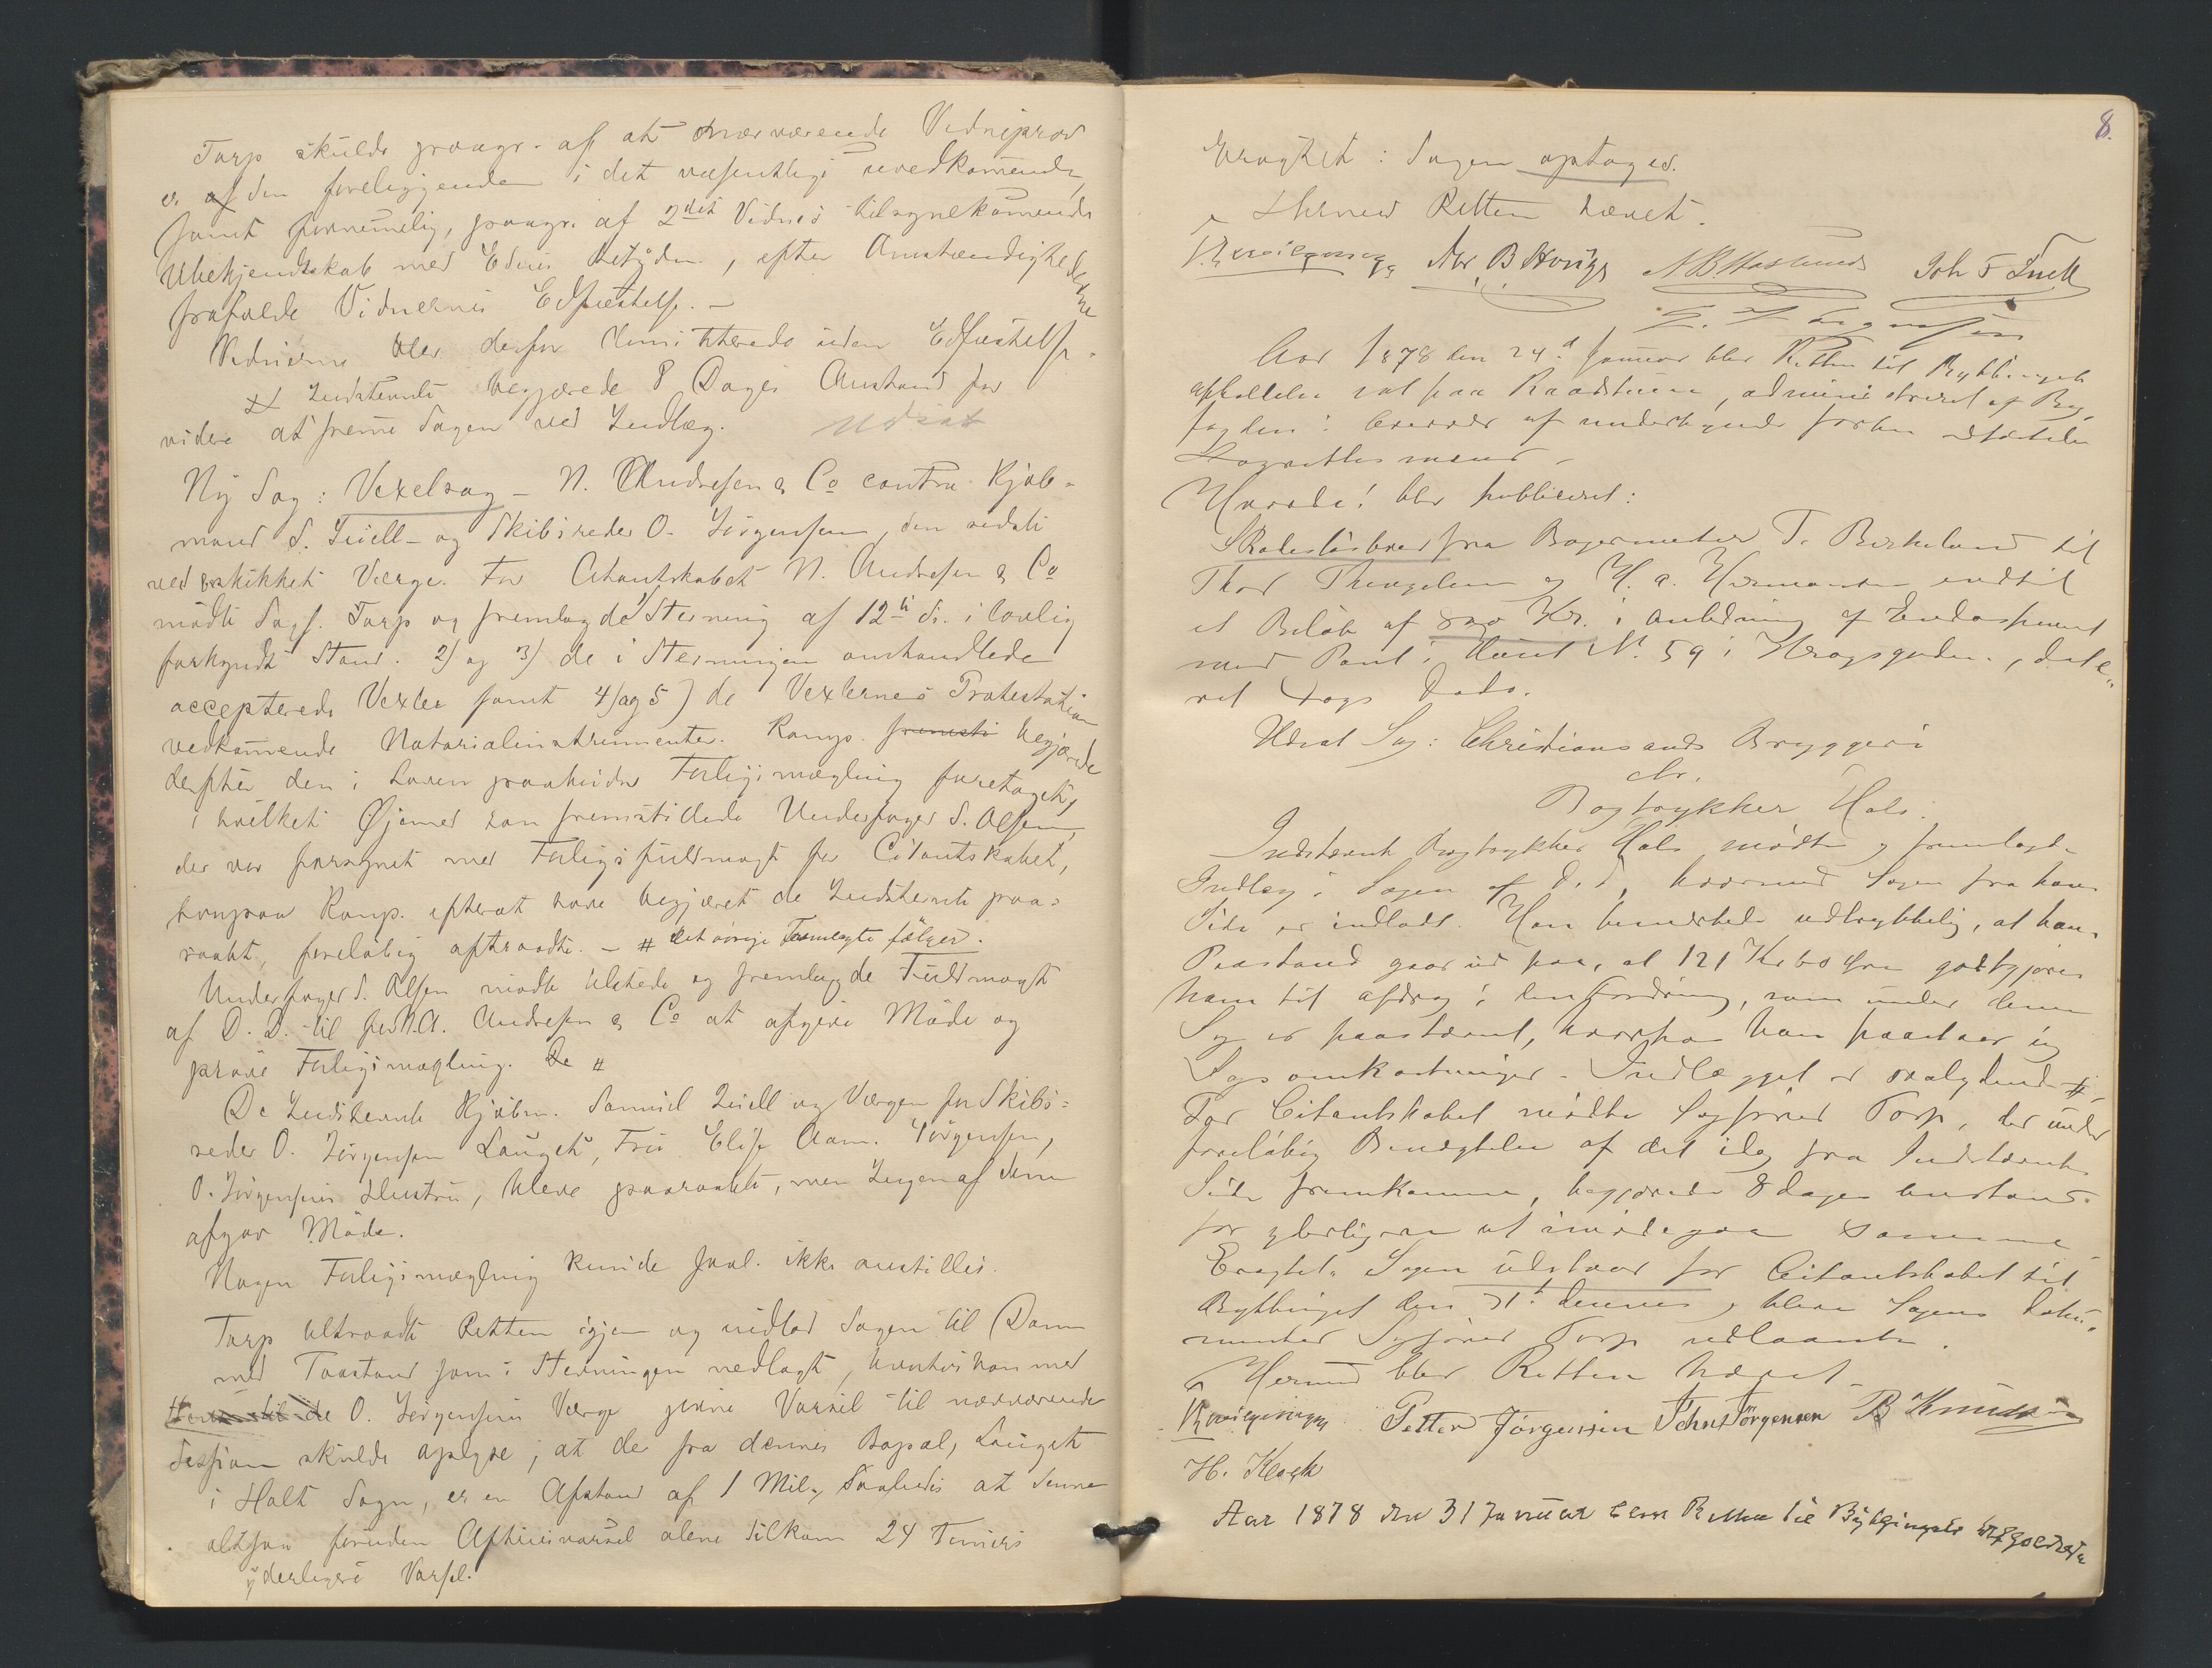 Torp skulde paagr. af at nærværende Vidneprov
er den foreliggende i det væsentlige uvedkommende,
samt fornemmelig, paagr. af 2det Vidnes tilsynekommende
Ubekjendtskab med Edens Betydn., efter Omstændighederne
frafalde Vidnernes Edfæstelse. –
Vidnerne blev derfor dimitterede uden Edfæstelse.
Indstevnte begjærede 8 Dages Anstand for
videre at fremme Sagen ved Indlæg. Udsat
Ny Sag: Vexelsag – N. Andresen & Co contra Kjøb-
mand S. Lüell – og Skibsreder O. Jörgensen, den sidste
ved beskikket Værge. For Citantskabet N. Andresen & Co
mødte Sagf. Torp og fremlagde 1/ Stevning af 12te ds. i lovlig
forkyndt Stand. 2) og 3) de i Stevningen omhandlede
accepterede Vexler samt 4) og 5) de Vexlernes Protestation
vedkommende Notarialinstrumenter. Komp. begjærede
derefter den i Loven paabudne Forligsmægling foretaget,
i hvilket Øjemed han fremstillede Underfoged S. Olsen,
der var forsynet med Forligsfuldmagt for Citantskabet,
hvorpaa Komp. efterat have begjæret de Indstevnte paa-
raabt, foreløbig aftraadte. – # det øvrige Fremlagte følger.
Underfoged S. Olsen mødte tilstede og fremlagde Fuldmagt
af D. D. til for N. A. Andresen & Co at afgive Møde og
prøve Forligsmægling. De #
De Indstevnte Kjøbm. Samuel Lüell og Værgen for Skibs-
reder O. Jörgensen Lauget, Fru Elise Aam. Jörgensen,
O. Jörgensens Hustru, bleve paaraabte, men Ingen af dem
afgav Møde.
Nogen Forligsmægling kunde saal. ikke anstilles.
Torp tiltraadte Retten igjen og indlod Sagen til Dom
med Paastand som i Stevningen nedlagt, hvorhos han med
O. Jörgensens Værge givne Varsel til nærværende
Session skulde oplyse, at der fra dennes Bopæl, Lauget
i Holt Sogn, er en Afstand af 1 Mil, saaledes at denne
altsaa foruden Aftensvarsel alene tilkom 24 Timers
yderligere Varsel.
8.
Eragtet: Sagen optages.
Hermed Retten hævet.
Joh F Luell
Aar 1878 den 24d Januar blev Retten til Bythingets
afholdelse sat paa Raadstuen, administreret af By-
fogden i Overvær af undertegnede forhen edfæstede
Lagrettesmænd –
Hvorda! blev publiceret:
Skadesløsbrev fra Bagermester T. Birkeland til
Thor Thengelsen og H. A. Hermansen indtil
et Beløb af 800 Kr. i anledning af Endossement
med Pant i Huset No. 59 i Kragsgaden, date-
ret Dags Dato.
Udsat Sag: Christiansands Bryggeri
ctr.
Bogtrykker Hals.
Indstevnte Bogtrykker Hals mødte og fremlagde
Indlæg i Sagen af D. D., hvormed Sagen fra hans
Side er indladt. Han bemærkede udtrykkelig, at hans
Paastand gaar ud paa, at 121 Kr 60 Øre godtgjøres
ham til afdrag i den Fordring, som under denne
Sag er paastævnt, hvorhos han paastaar sig
Sagsomkostninger. Indlægget er saalydende #
For Citantskabet mødte Sagfører Torp, der under
foreløbig Benægtelse af det idag fra Indstævntes
Side fremkomne, begjærede 8 dages anstand
for yderligere at imødegaa samme
Eragtet: Sagen udstaar for Citantskabet til
Bythinget den 31t dennes, bleve Sagens Doku-
menter Sagfører Torp udlaante.
Hermed blev Retten hævet
Petter Jörgensen Johns Jörgensen B Knudsen
H. Klock
Aar 1878 den 31 Januar blev Retten til Bythingets Afholdelse